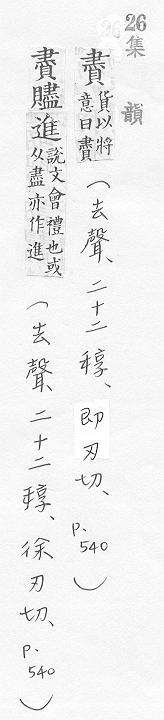 26集韻
賮 貨以將意曰賮（去聲、二十二稕、即刃切、p.540）
賮贐進 說文會禮也或从盡亦作進（去聲、二十二稕、徐刃切、p.540）